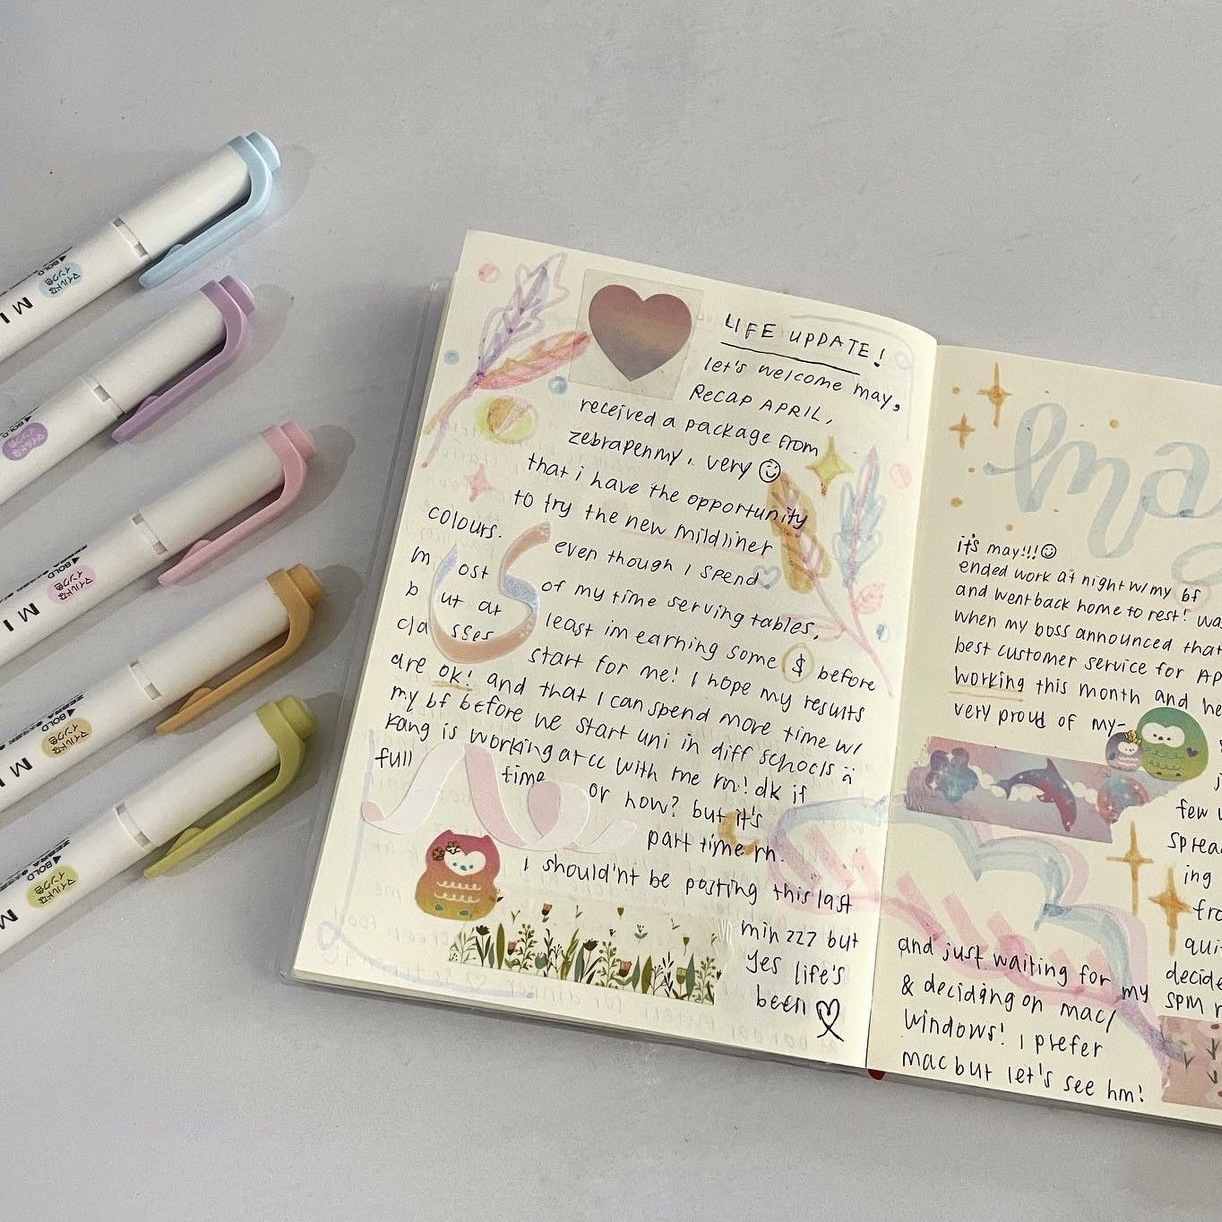 LIFE UPDATE!
let's welcome may,
Recap APRIL,
received a package from
zebrapenmy. very
that i have the opportunity
to try the new mildliner
colours.
even though I spend
most of my time serving tables,
but at least im earning some $ before
classes start for me! I hope my results
are ok! and that I can spend more time w/
my bf before we start uni in diff schools
Kang is working at cc with me rn! dk if
full time or how? but it's
part time rn.
I should'nt be posting this last
min zzz but
yes life's
been
may
it's may!!!
ended work at night w/ my bf
and went back home to rest! was
when my boss announced that
best customer service for AP
working this month and he
very proud of my-
j
few w
sprea
ing
fro
qui
decide
SPM r
and just waiting for my
& deciding on mac/
windows! I prefer
mac but let's see hm!
BOLD
マイルドな
インク色
M I
BOLD
マイルドな
インク色
ZEBRA
BOLD
マイルドな
インク色
M I
ZEBRA
BOLD
マイルドな
インク色
M I
ZEBRA
BOLD
マイルドな
インク色
M